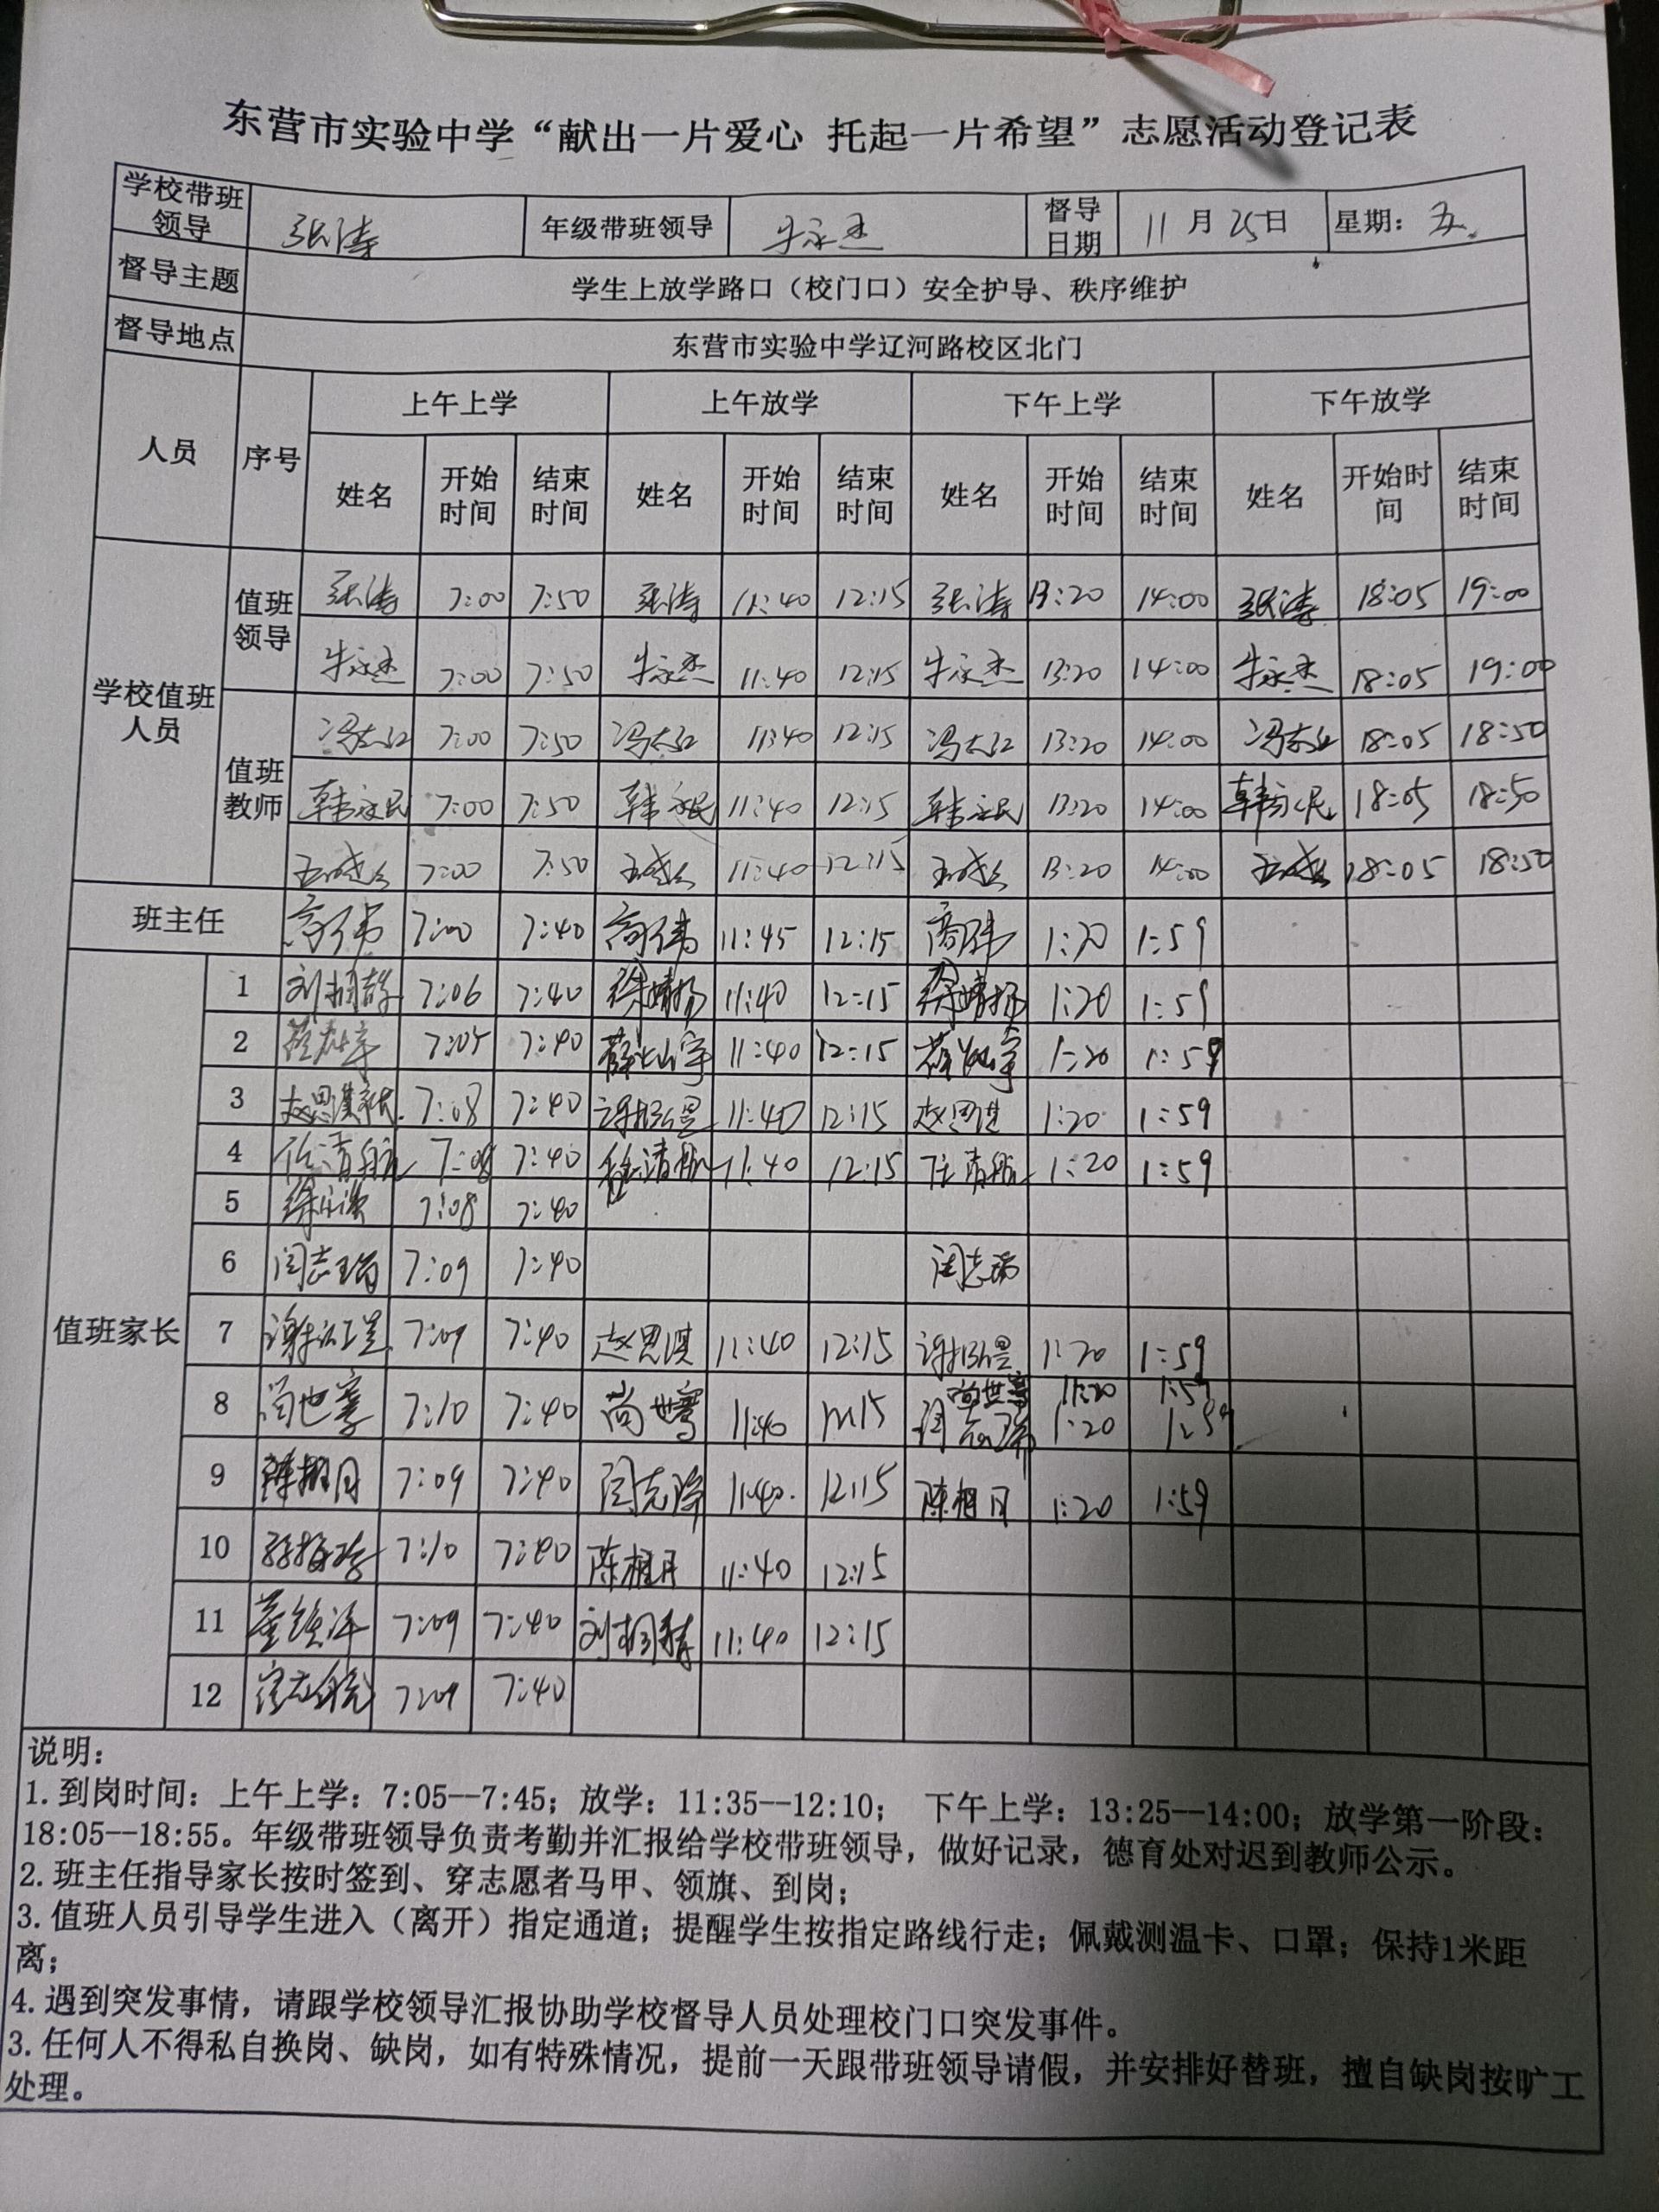 东营市实验中学“献出一片爱心 托起一片希望”志愿活动登记表
学校带班领导 张涛 年级带班领导 牛永杰 督导日期 11月25日 星期：五.
督导主题 学生上放学路口（校门口）安全护导、秩序维护
督导地点 东营市实验中学辽河路校区北门
人员 序号 上午上学 上午放学 下午上学 下午放学
姓名 开始时间 结束时间 姓名 开始时间 结束时间 姓名 开始时间 结束时间 姓名 开始时间 结束时间
学校值班人员
值班领导
张涛 7:00 7:50 张涛 11:40 12:15 张涛 13:20 14:00 张涛 18:05 19:00
牛永杰 7:00 7:50 牛永杰 11:40 12:15 牛永杰 13:20 14:00 牛永杰 18:05 19:00
值班教师
7:00 7:50 11:40 12:15 13:20 14:00 18:05 18:50
韩永民 7:00 7:50 韩永民 11:40 12:15 韩永民 13:20 14:00 韩永民 18:05 18:50
7:00 7:50 11:40 12:15 13:20 14:00 18:05 18:50
班主任 7:00 7:40 11:45 12:15 1:20 1:59
值班家长
1 7:06 7:40 徐婧扬 11:40 12:15 徐婧扬 1:20 1:59
2 7:05 7:40 11:40 12:15 1:20 1:59
3 赵思淇 7:08 7:40 11:40 12:15 赵思淇 1:20 1:59
4 任清航 7:08 7:40 任清航 11:40 12:15 任清航 1:20 1:59
5 7:08 7:40
6 闫志瑞 7:09 7:40 闫志瑞
7 7:09 7:40 赵思淇 11:40 12:15 1:20 1:59
8 尚世骞 7:10 7:40 尚世骞 11:40 尚世骞 1:59
闫志瑞 1:20 1:59
9 陈相月 7:09 7:40 11:40 12:15 陈相月 1:20 1:59
10 7:10 7:40 陈相月 11:40 12:15
11 7:09 7:40 11:40 12:15
12 7:09 7:40
说明：
1.到岗时间：上午上学：7:05--7:45；放学：11:35--12:10； 下午上学：13:25--14:00；放学第一阶段：
18:05--18:55。年级带班领导负责考勤并汇报给学校带班领导，做好记录，德育处对迟到教师公示。
2.班主任指导家长按时签到、穿志愿者马甲、领旗、到岗；
3.值班人员引导学生进入（离开）指定通道；提醒学生按指定路线行走；佩戴测温卡、口罩；保持1米距
离；
4.遇到突发事情，请跟学校领导汇报协助学校督导人员处理校门口突发事件。
3.任何人不得私自换岗、缺岗，如有特殊情况，提前一天跟带班领导请假，并安排好替班，擅自缺岗按旷工
处理。